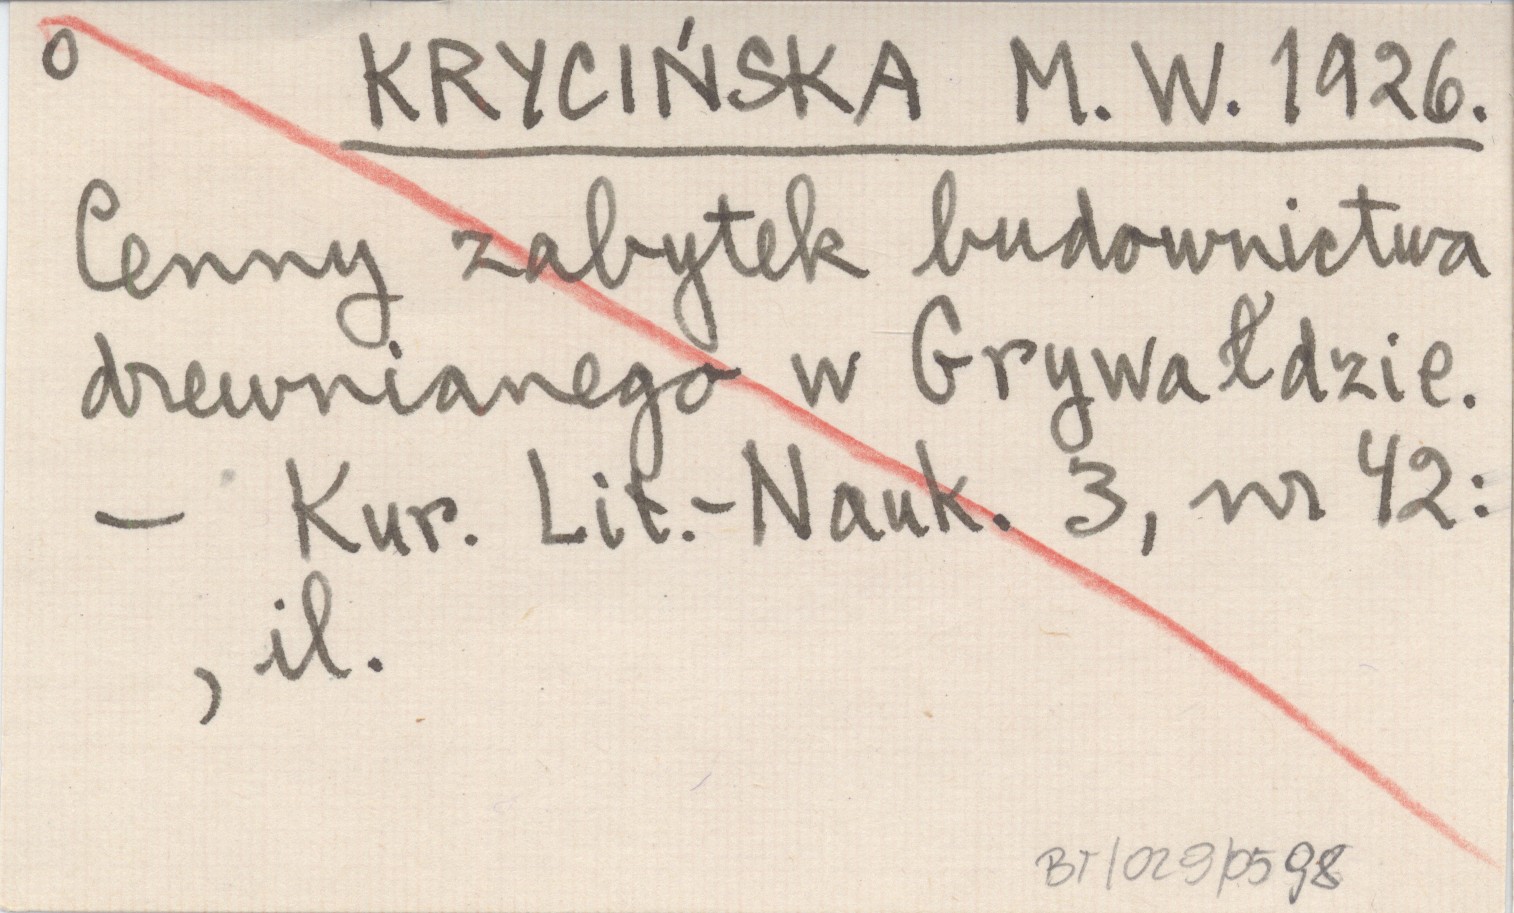 o KRYCIŃSKA M. W. 1926.
Cenny zabytek budownictwa
drewnianego w Grywałdzie.
— Kur. Lit.-Nauk. 3, nr 42:
, il.
BT/029/0598